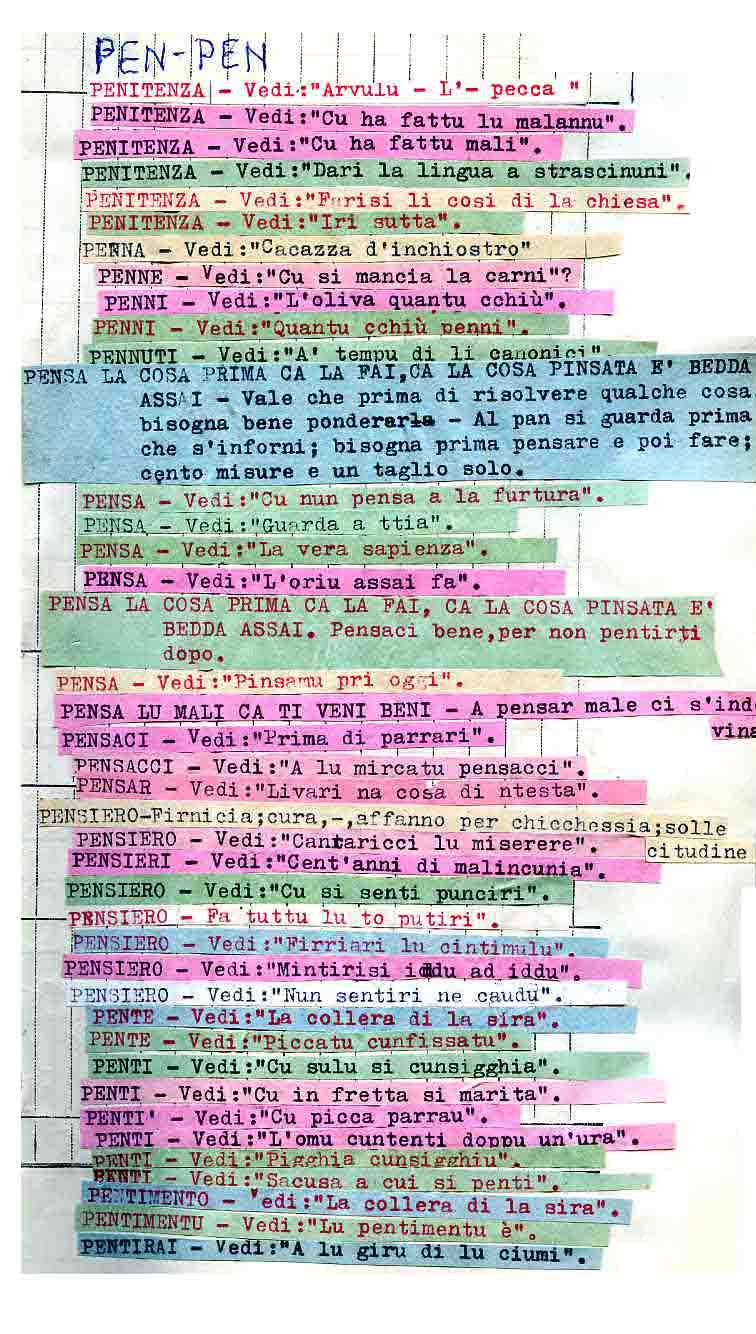 PEN-PEN
PENITENZA - Vedi:"Arvulu - L'- pecca "
PENITENZA - Vedi:"Cu ha fattu lu malannu".
PENITENZA - Vedi:"Cu ha fattu mali".
PENITENZA - Vedi:"Dari la lingua a strascinuni".
PENITENZA - Vedi:"Farisi li cosi di la chiesa".
PENITENZA - Vedi:"Iri sutta".
PENNA - Vedi:"Cacazza d'inchiostro"
PENNE - Vedi:"Cu si mancia la carni"?
PENNI - Vedi:"L'oliva quantu cchiù".
PENNI - Vedi:"Quantu cchiù penni".
PENNUTI - Vedi:"A' tempu di li canonici"
PENSA LA COSA PRIMA CA LA FAI,CA LA COSA PINSATA E' BEDDA
ASSAI - Vale che prima di risolvere qualche cosa
bisogna bene ponderarla - Al pan si guarda prima
che s'inforni; bisogna prima pensare e poi fare;
cento misure e un taglio solo.
PENSA - Vedi:"Cu nun pensa a la furtura".
PENSA - Vedi:"Guarda a ttia".
PENSA - Vedi:"La vera sapienza".
PENSA - Vedi:"L'oriu assai fa".
PENSA LA COSA PRIMA CA LA FAI, CA LA COSA PINSATA E'
BEDDA ASSAI. Pensaci bene,per non pentirti
dopo.
PENSA - Vedi:"Pinsamu pri oggi".
PENSA LU MALI CA TI VENI BENI - A pensar male ci s'indo
vina
PENSACI - Vedi:"Prima di parrari".
PENSACCI - Vedi:"A lu mircatu pensacci".
PENSAR - Vedi:"Livari na cosa di ntesta".
PENSIERO-Firnicia;cura,-,affanno per chicchessia;solle
citudine
PENSIERO - Vedi:"Cantaricci lu miserere".
PENSIERI - Vedi:"Cent'anni di malincunia".
PENSIERO - Vedi:"Cu si senti punciri".
PENSIERO - Fa tuttu lu to putiri".
PENSIERO - Vedi:"Firriari lu cintimulu".
PENSIERO - Vedi:"Mintirisi iddu ad iddu".
PENSIERO - Vedi:"Nun sentiri ne caudu".
PENTE - Vedi:"La collera di la sira".
PENTE - Vedi:"Piccatu cunfissatu".
PENTI - Vedi:"Cu sulu si cunsigghia".
PENTI - Vedi:"Cu in fretta si marita".
PENTI' - Vedi:"Cu picca parrau".
PENTI - Vedi:"L'omu cuntenti doppu un'ura".
PENTI - Vedi:"Pigghia cunsigghiu".
PENTI - Vedi:"Sacusa a cui si penti".
PENTIMENTO - Vedi:"La collera di la sira".
PENTIMENTU - Vedi:"Lu pentimentu è".
PENTIRAI - Vedi:"A lu giru di lu ciumi".